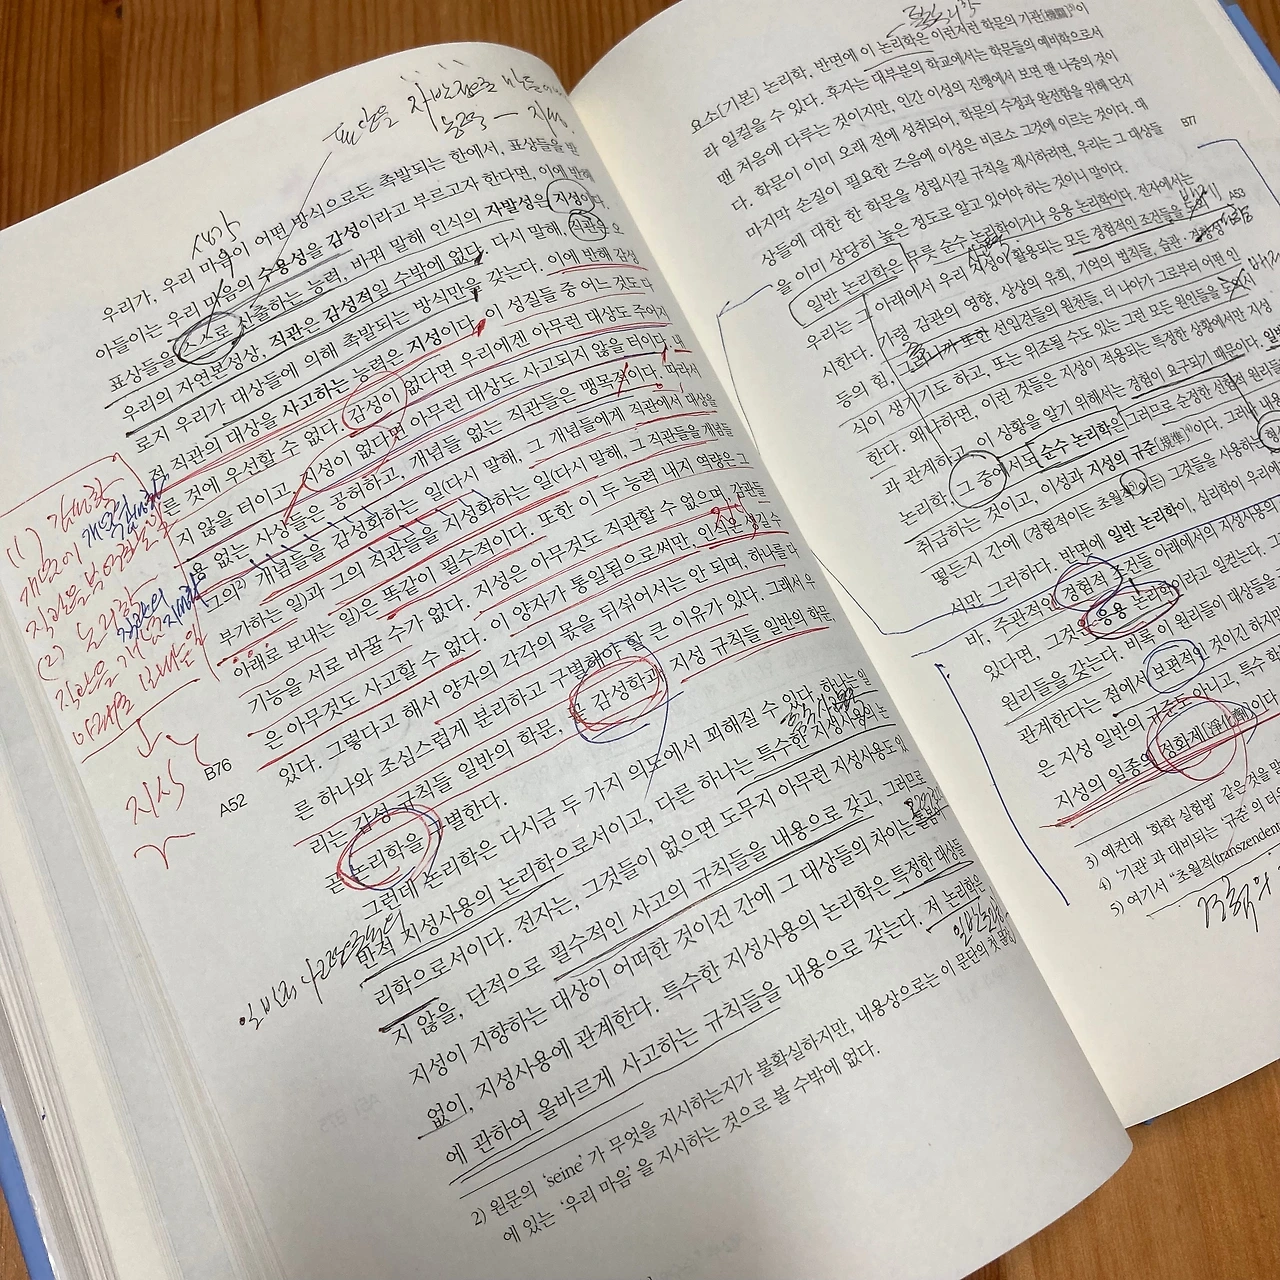 표상을 자발적으로
능력 — 지성.
생각
우리가, 우리 마음이 어떤 방식으로든 촉발되는 한에서, 표상들을 받
아들이는 우리 마음의 수용성을 감성이라고 부르고자 한다면, 이에 반해
표상들을 스스로 산출하는 능력, 바꿔 말해 인식의 자발성은 지성이다.
우리의 자연본성상, 직관은 감성적일 수밖에 없다. 다시 말해, 직관은 오
로지 우리가 대상들에 의해 촉발되는 방식만을 갖는다. 이에 반해 감성
적 직관의 대상을 사고하는 능력은 지성이다. 이 성질들 중 어느 것도 다
른 것에 우선할 수 없다. 감성이 없다면 우리에겐 아무런 대상도 주어지
지 않을 터이고, 지성이 없다면 아무런 대상도 사고되지 않을 터이다. 내
용 없는 사상들은 공허하고, 개념들 없는 직관들은 맹목적이다. 따라서
그의²⁾ 개념들을 감성화하는 일(다시 말해, 그 개념들에게 직관에서 대상을
부가하는 일)과 그의 직관들을 지성화하는 일(다시 말해, 그 직관들을 개념들
아래로 보내는 일)은 똑같이 필수적이다. 또한 이 두 능력 내지 역량은 그
기능을 서로 바꿀 수가 없다. 지성은 아무것도 직관할 수 없으며, 감관들
은 아무것도 사고할 수 없다. 이 양자가 통일됨으로써만, 인식은 생길 수
있다. 그렇다고 해서 양자의 각각의 몫을 뒤섞어서는 안 되며, 하나를 다
른 하나와 조심스럽게 분리하고 구별해야 할 큰 이유가 있다. 그래서 우
리는 감성 규칙들 일반의 학문, 곧 감성학과 지성 규칙들 일반의 학문,
곧 논리학을 구별한다.
그런데 논리학은 다시금 두 가지 의도에서 꾀해질 수 있다. 하나는 일
반적 지성사용의 논리학으로서이고, 다른 하나는 특수한 지성사용의 논
리학으로서이다. 전자는, 그것들이 없으면 도무지 아무런 지성사용도 있
지 않을, 단적으로 필수적인 사고의 규칙들을 내용으로 갖고, 그러므로
지성이 지향하는 대상이 어떠한 것이건 간에 그 대상들의 차이는
없이, 지성사용에 관계한다. 특수한 지성사용의 논리학은 특정한 대상들
에 관하여 올바르게 사고하는 규칙들을 내용으로 갖는다. 저 논리학은
(1) 감성학
개념에
직관을 부여하는 일
(2) 논리학
직관을 개념
아래로 보내는 일
지식
B76
A52
2) 원문의 ‘seine’가 무엇을 지시하는지가 불확실하지만, 내용상으로는 이 문단의 첫 문장
에 있는 ‘우리 마음’을 지시하는 것으로 볼 수밖에 없다.
요소[기본] 논리학, 반면에 이 논리학은 이런저런 학문의 기관(機關)⁴⁾이
라 일컬을 수 있다. 후자는 대부분의 학교에서는 학문들의 예비학으로서
맨 처음에 다루는 것이지만, 인간 이성의 진행에서 보면 맨 나중의 것이
다. 학문이 이미 오래 전에 성취되어, 학문의 수정과 완전함을 위해 단지
마지막 손질이 필요한 즈음에 이성은 비로소 그것에 이르는 것이다. 대
상들에 대한 한 학문을 성립시킬 규칙을 제시하려면, 우리는 그 대상들
을 이미 상당히 높은 정도로 알고 있어야 하는 것이니 말이다.
B77
일반 논리학은 무릇 순수 논리학이거나 응용 논리학이다. 전자에서는
A53
우리는 그 아래에서 우리 지성이 활용되는 모든 경험적인 조건들을
시한다. 가령 감관의 영향, 상상의 유희, 기억의 법칙들, 습관·경향성
등의 힘, 그러니까 또한 선입견들의 원천들, 더 나아가 그로부터 어떤 인
식이 생기기도 하고, 또는 위조될 수도 있는 그런 모든 원인들을 도외시
한다. 왜냐하면, 이런 것들은 지성이 적용되는 특정한 상황에서만 지성
과 관계하고, 이 상황을 알기 위해서는 경험이 요구되기 때문이다. 일
논리학, 그 중에서도 순수 논리학은 그러므로 순정한 선험적 원리들
취급하는 것이고, 이성과 지성의 규준(規準)이다. 그러나
떻든지 간에 (경험적이든 초월적⁵⁾이든) 그것들을 사용하는 형식
서만 그러하다. 반면에 일반 논리학이, 심리학이 우리에
바, 주관적인 경험적 조건들 아래에서의 지성사용의
있다면, 그것은 응용 논리학이라고 일컫는다. 그
원리들을 갖는다. 비록 이 원리들이 대상들을
관계한다는 점에서 보편적인 것이긴 하지
은 지성 일반의 규준도 아니고, 특수 학
지성의 일종의 정화제(淨化劑)이다.
3) 예컨대 ‘화학 실험법’ 같은 것을 말
4) ‘기관’과 대비되는 ‘규준’의
5) 여기서 “초월적(transzenden